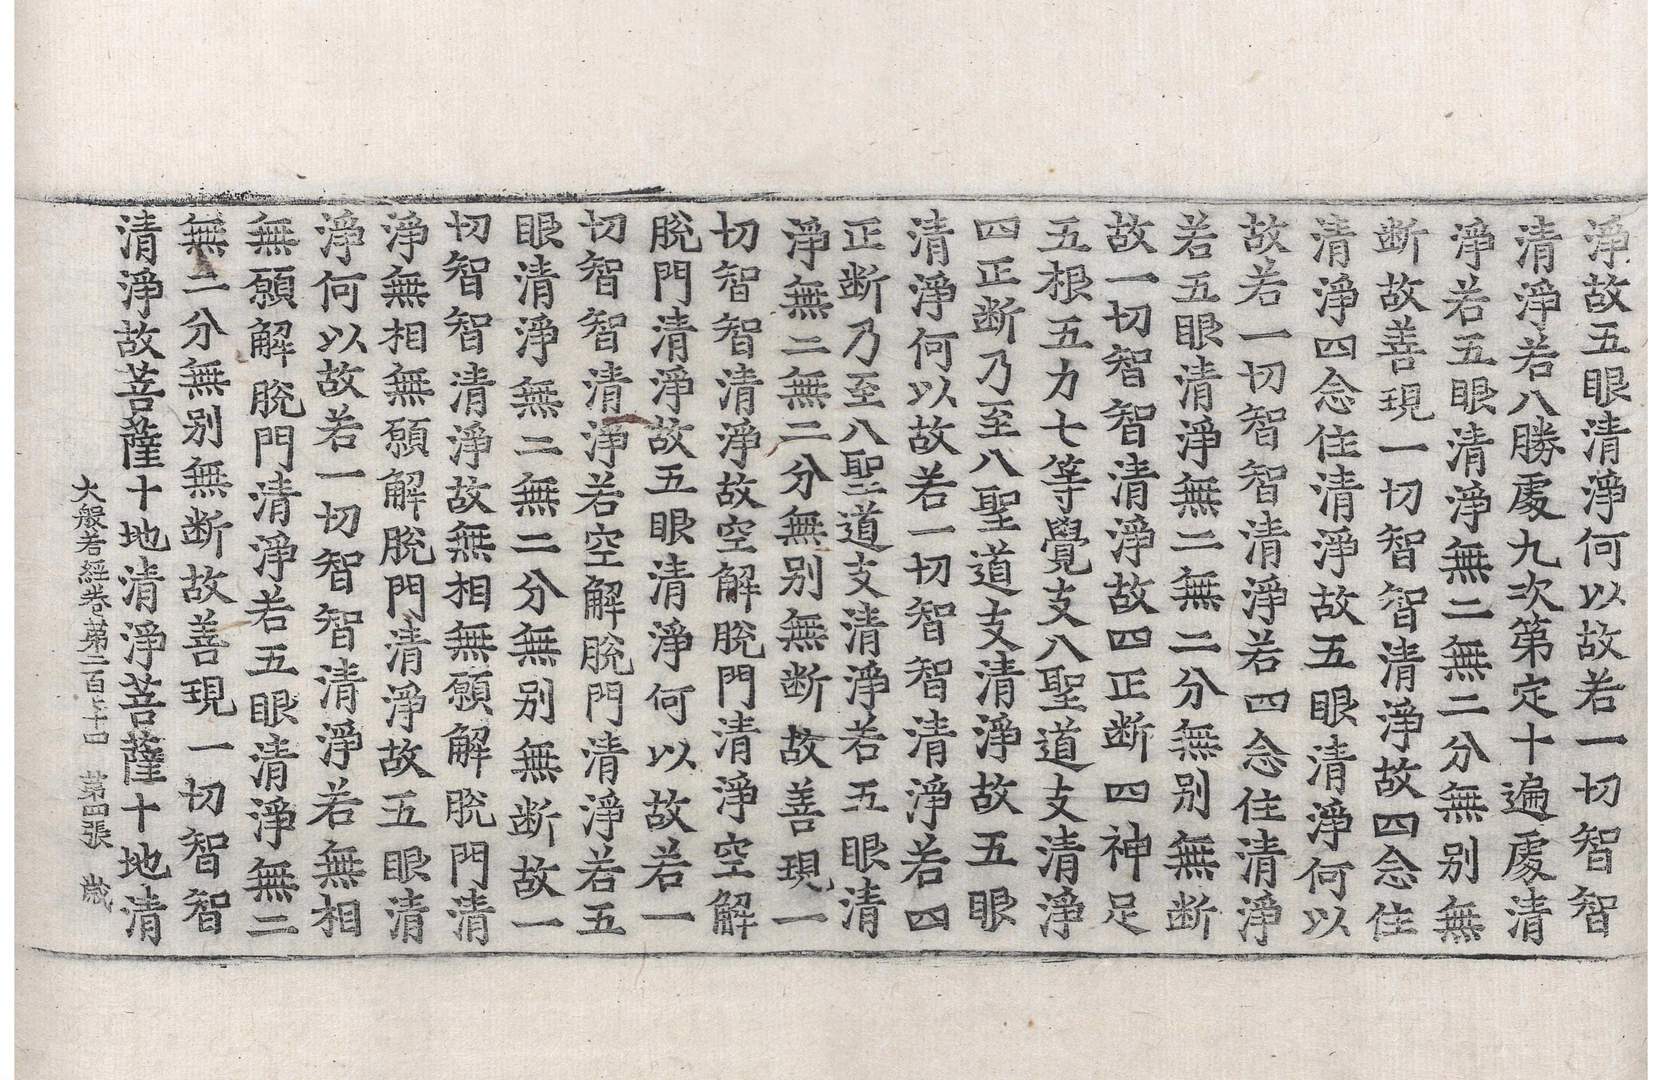 淨故五眼清淨何以故若一切智智
清淨若八勝處九次第定十遍處清
淨若五眼清淨無二無二分無別無
断故善現一切智智清淨故四念住
清淨四念住清淨故五眼清淨何以
故若一切智智清淨若四念住清淨
若五眼清淨無二無二分無别無断
故一切智智清淨故四正断四神足
五根五力七等覺支八聖道支清淨
四正断乃至八聖道支清淨故五眼
清淨何以故若一切智智清淨若四
正断乃至八聖道支清淨若五眼清
淨無二無二分無别無断故善現一
切智智清淨故空解脫門清淨空解
脫門清淨故五眼清淨何以故若一
切智智清淨若空解脫門清淨若五
眼清淨無二無二分無别無断故一
切智智清淨故無相無願解脫門清
淨無相無願解脫門清淨故五眼清
淨何以故若一切智智清淨若無相
無願解脫門清淨若五眼清淨無二
無二分無别無断故善現一切智智
清淨故菩薩十地清淨菩薩十地清
大般若經卷第二百七十四 第四張 歲